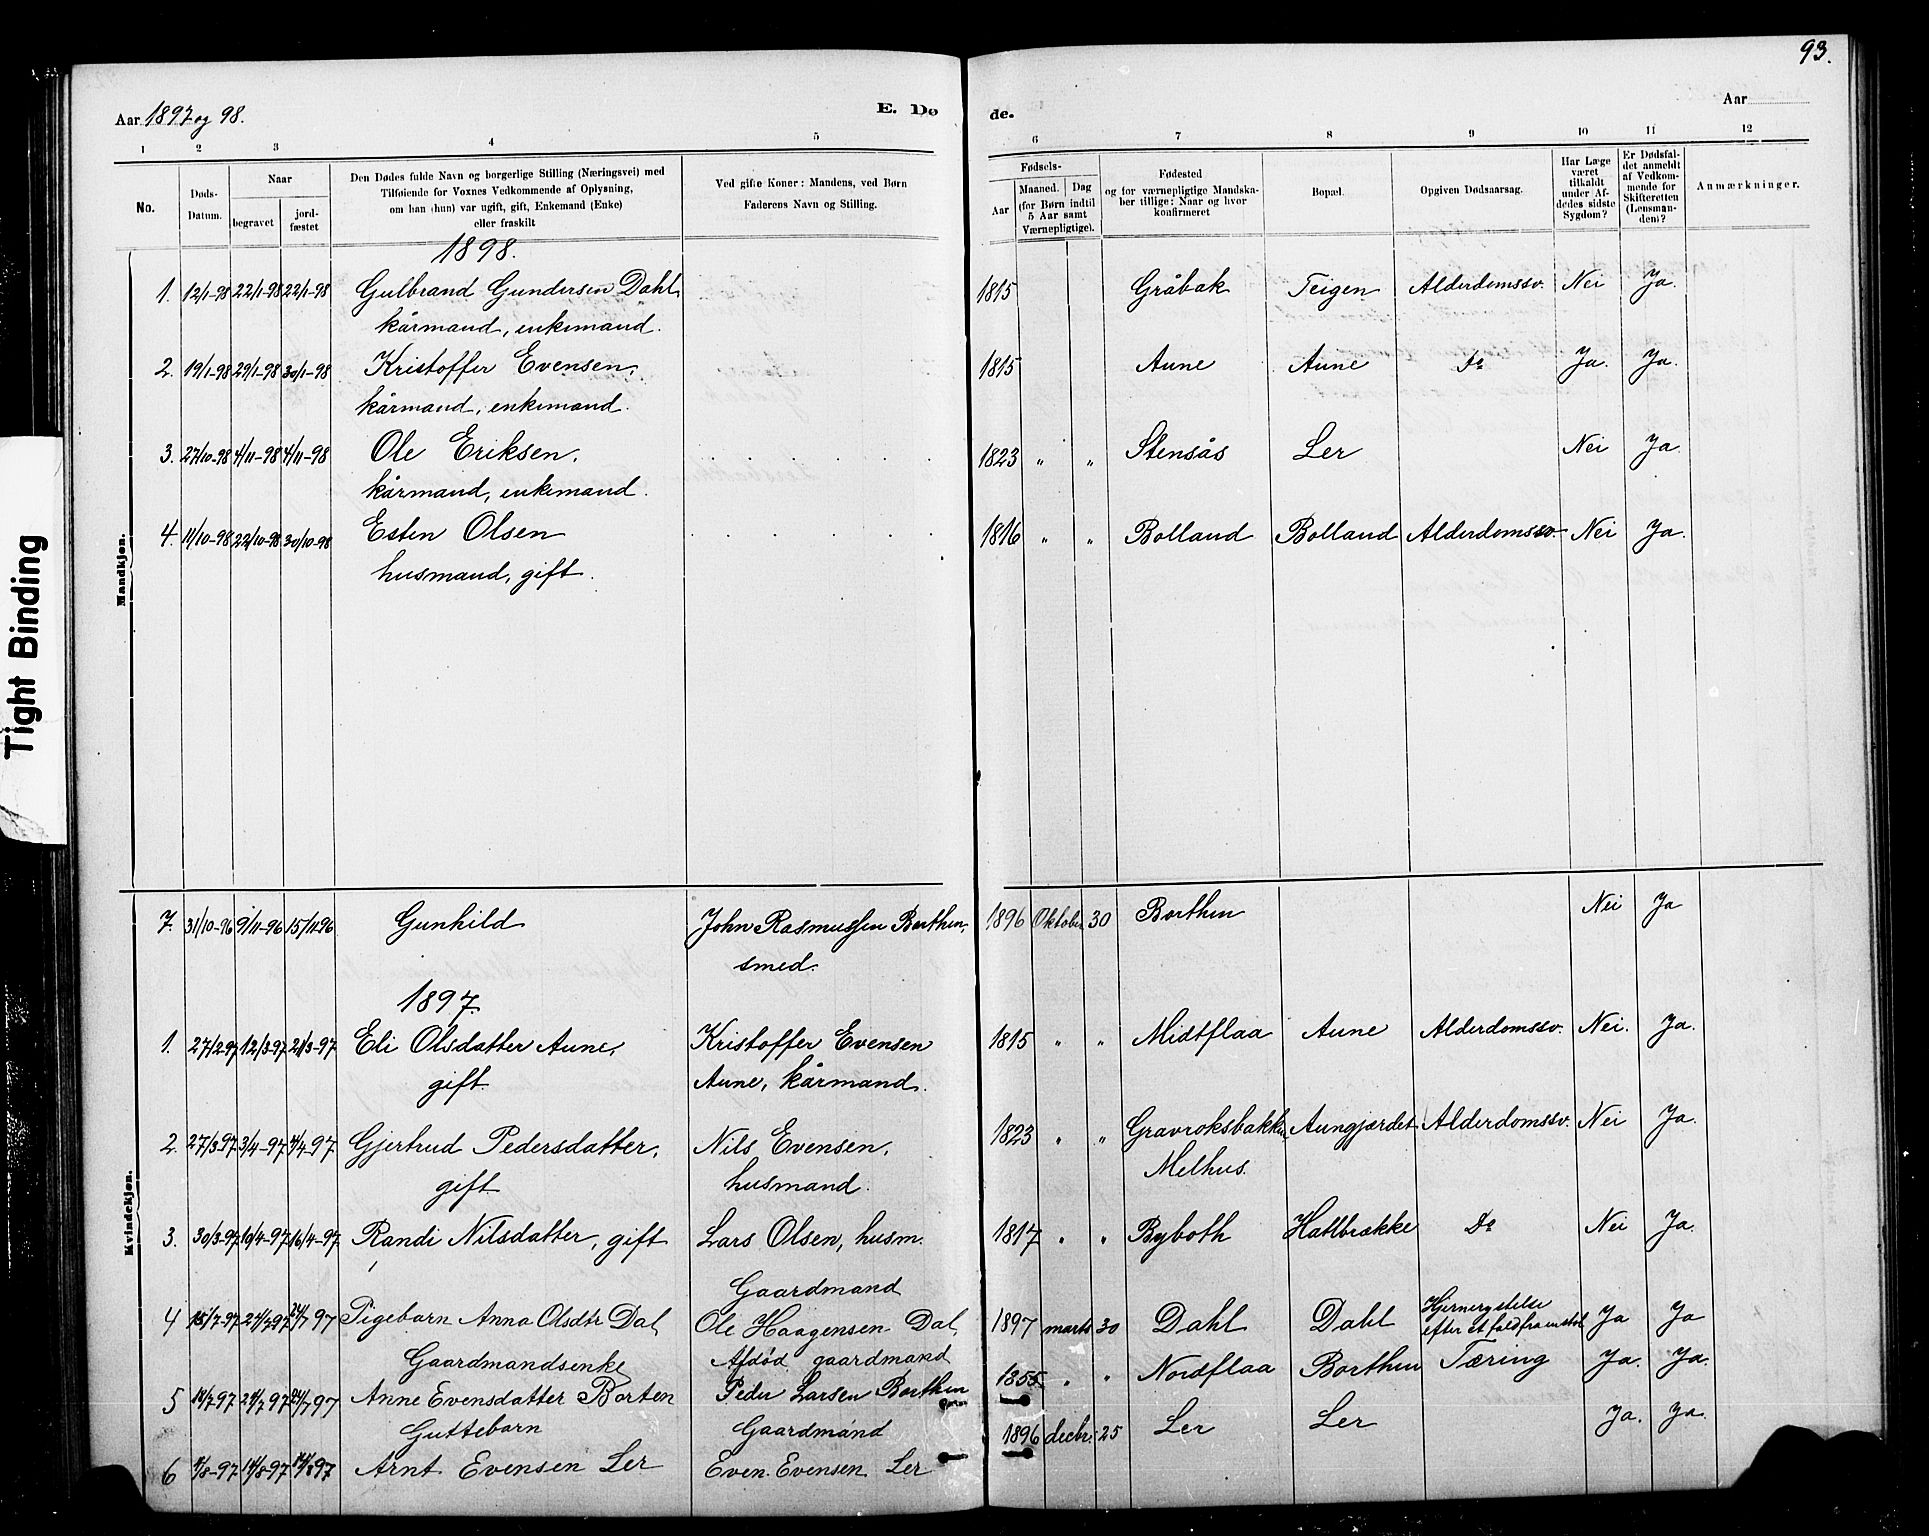 93.
Aar 1897 og 98.
E. Dø
de.
Aar
1 2 3 4 5
6 7 8 9 10 11 12
No.
Døds-Datum.
Naar
begravet
jord-fæstet
Den Dødes fulde Navn og borgerlige Stilling (Næringsvei) med
Tilføiende for Voxnes Vedkommende af Oplysning,
om han (hun) var ugift, gift, Enkemand (Enke)
eller fraskilt
Ved gifte Koner: Mandens, ved Børn
Faderens Navn og Stilling.
Fødsels-
Aar
Maaned. Dag
(for Børn indtil
5 Aar samt
Værnepligtige).
Fødested
og for værnepligtige Mandska-
ber tillige: Naar og hvor
konfirmeret
Bopæl.
Opgiven Dødsaarsag.
Har Læge
været
tilkaldt
under Af-
dødes sidste
Sygdom?
Er Dødsfal-
det anmeldt
af Vedkom-
mende for
Skifteretten
(Lensman-
den)?
Anmærkninger.
Tight Binding
Mandkjøn.
1898.
1. 12/1-98 22/1-98 22/1-98 Gulbrand Gundersen Dahl, 1815 Gråbak Teigen Alderdomssv. Nei Ja.
kårmand, enkemand.
2. 19/1-98 29/1-98 30/1-98 Kristoffer Evensen, 1815 Aune Aune Do Ja. Ja.
kårmand, enkemand.
3. 27/10-98 4/11-98 4/11-98 Ole Eriksen, 1823 " " Stensås Ler Nei Ja.
kårmand, enkemand.
4. 11/10-98 22/10-98 30/10-98 Esten Olsen 1816 " " Bolland Bolland Alderdomssv. Nei Ja.
husmand, gift.
Kvindekjøn.
7. 31/10-96 9/11-96 15/11-96 Gunhild John Rasmussen Borthen, 1896 Oktober 30 Borthen Nei Ja
smed.
1897.
1. 27/2-97 12/3-97 21/3-97 Eli Olsdatter Aune, Kristoffer Evensen 1815 " " Midtflaa Aune Alderdomssv. Nei. Ja.
gift. Aune, kårmand.
2. 27/3-97 3/4-97 4/4-97 Gjertrud Pedersdatter, Nils Evensen, 1823 " " Gravroksbakken Aungjærdet Alderdomssv. Nei Ja.
gift husmand. Melhus.
3. 30/3-97 10/4-97 16/4-97 Randi Nilsdatter, gift Lars Olsen, husm. 1817 " " Byboth Hatlbrække Do Nei Ja.
Gaardmand
4 15/7-97 24/7 97 24/7 97 Pigebarn Anna Olsdtr Dal Ole Haagensen Dal 1897 marts 30 Dahl Dahl Hjernerystelse Ja Ja
efter et fald fra en stol
Gaardmandsenke Afdød gaardmand
5 97 24/7 97 97 Anne Evensdatter Borten Peder Larsen Borthen 1855. " " Nordflaa Borthen Tæring Ja. Ja.
Guttebarn Gaardmand
6 /8-97 14/8-97 97 Arnt Evensen Ler Even Evensen Ler 1896 decbr. 25 Ler Ler Ja. Ja.